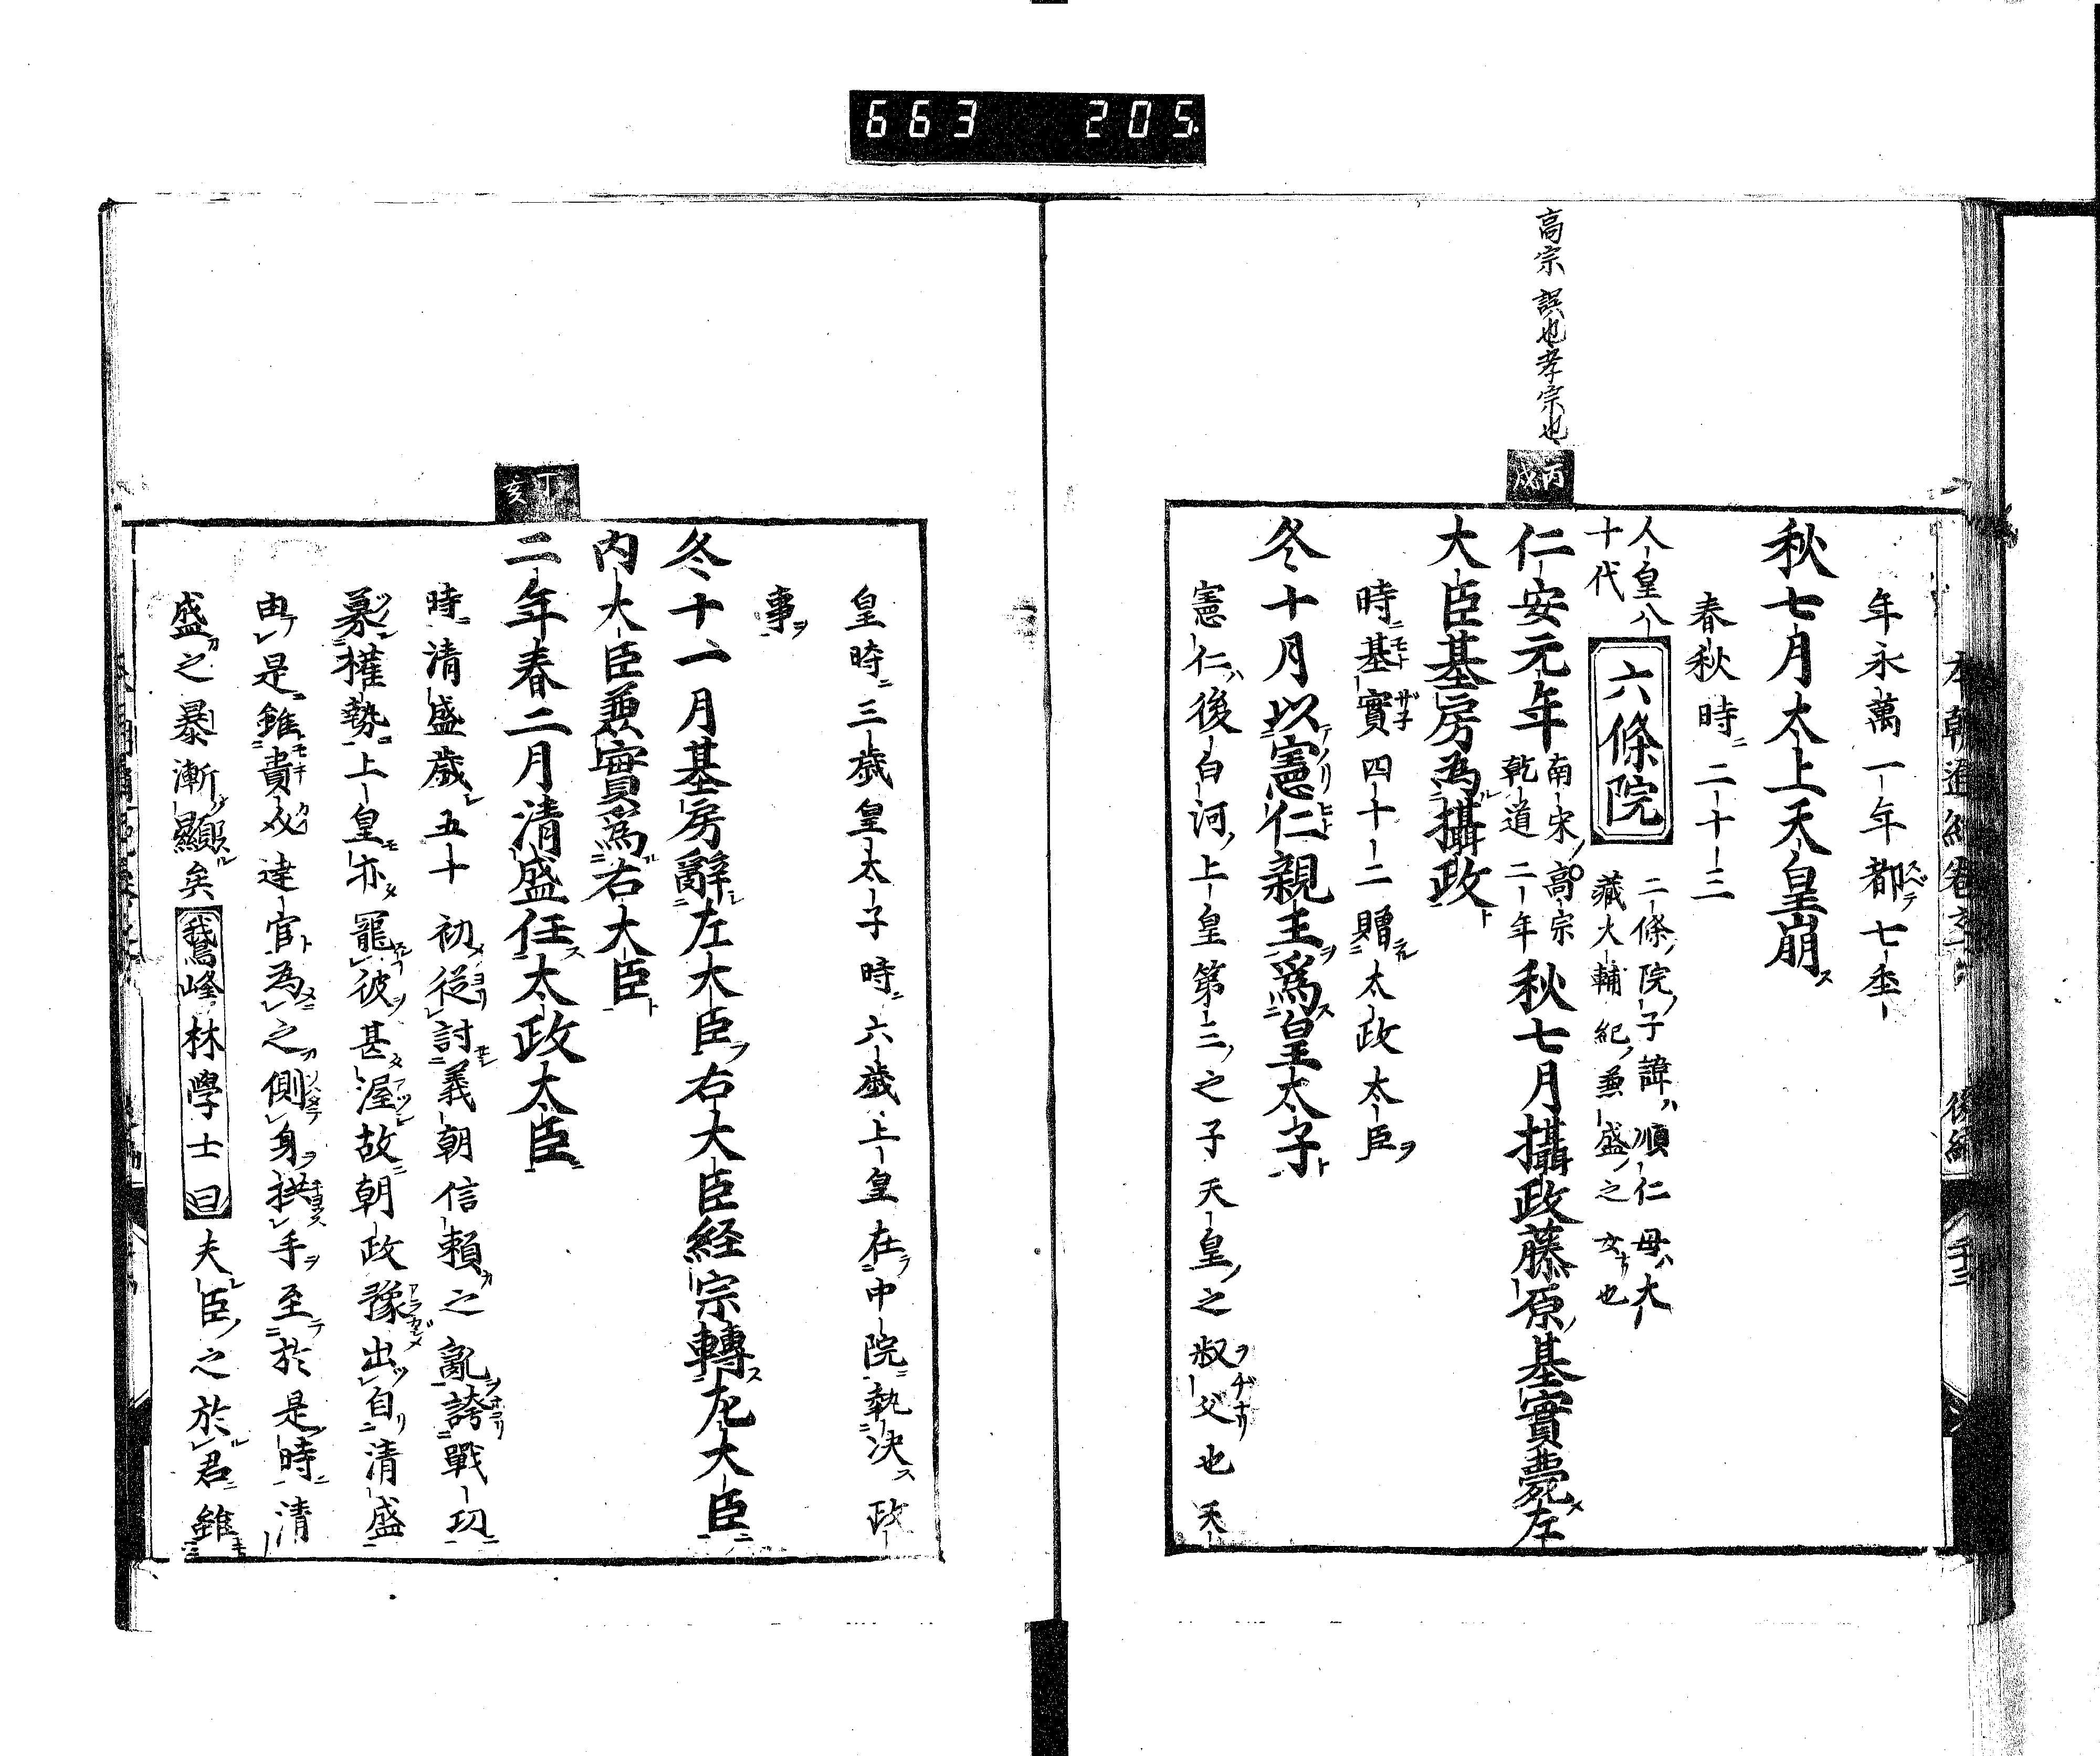 663 205
高宗誤也孝宗也
年永萬一年都七年
秋七月太上天皇崩
春秋時二十三
人皇八十代
六條院
二條院子諱順仁母大
藏大輔紀兼盛之女也
丙戌
仁安元年
南宋高宗
乾道二年
秋七月攝政藤原基實薨左
大臣基房為攝政
時基實四十二贈太政太臣
冬十月以憲仁親王爲皇太子
憲仁後白河上皇第三之子天皇之叔父也天
皇時三歳皇太子時六歳上皇在中院執決政
事
冬十一月基房辭左大臣右大臣経宗轉左大臣
内大臣兼實爲右大臣
丁亥
二年春二月清盛任太政大臣
時清盛歳五十初從討義朝信頼之亂誇戰功
募權勢上皇亦寵彼甚渥故朝政豫出自清盛
由是雖貴戚達官為之側身拱手至於是時清
盛之暴漸顯矣
鵞峰林學士曰
夫臣之於君雖